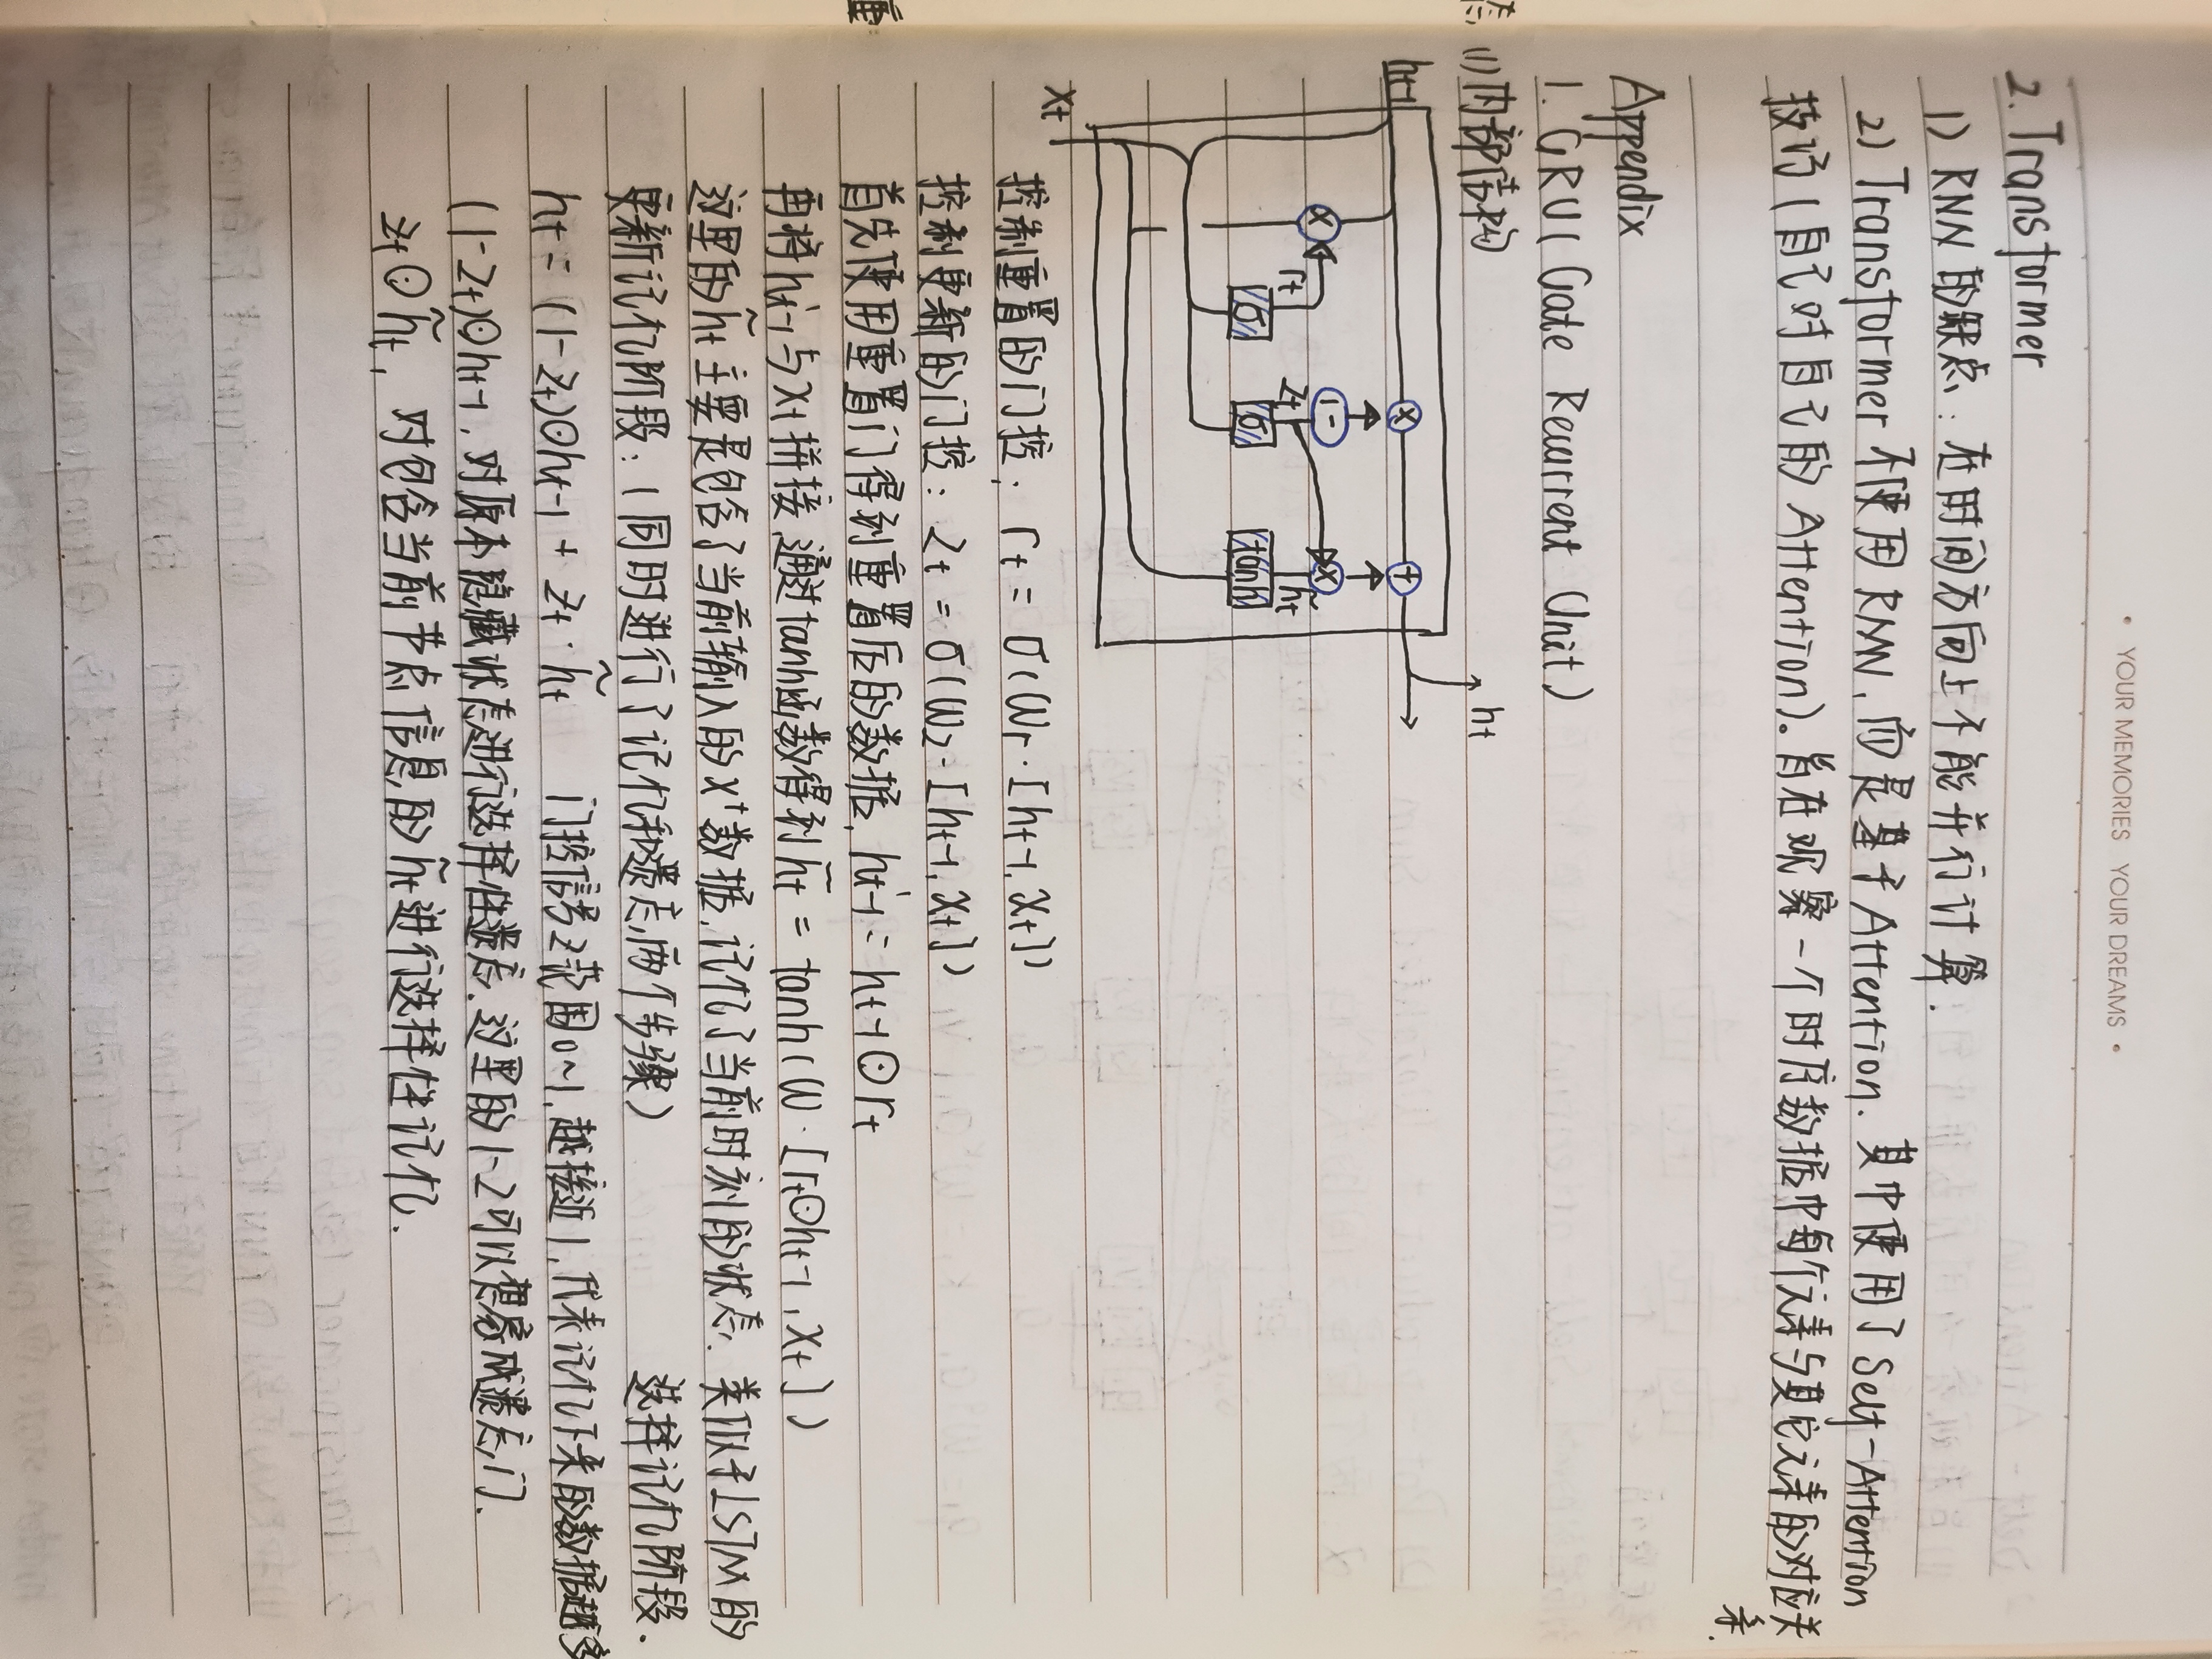 • YOUR MEMORIES YOUR DREAMS •
2. Transformer
1) RNN 的缺点: 在时间方向上不能并行计算.
2) Transformer 不使用 RNN, 而是基于 Attention. 其中使用了 Self-Attention
技巧 (自己对自己的 Attention). 旨在观察一个时序数据中每个元素与其它元素的对应关
系.
Appendix
1. GRU ( Gate Recurrent Unit )
(1) 内部结构
ht-1
ht
x
x
+
rt
zt
1-
x
h̃t
σ
σ
tanh
xt
控制重置的门控: rt = σ(Wr·[ht-1, xt])
控制更新的门控: zt = σ(Wz·[ht-1, xt])
首先使用重置门得到重置后的数据, h't-1 = ht-1⊙rt
再将h't-1与xt拼接, 通过tanh函数得到 h̃t = tanh(W·[rt⊙ht-1, xt])
这里的h̃t主要是包含了当前输入的x^t数据, 记忆了当前时刻的状态. 类似于LSTM的
选择记忆阶段.
更新记忆阶段: (同时进行了记忆和遗忘两个步骤)
ht = (1-zt)⊙ht-1 + zt·h̃t 门控信号z范围0~1, 越接近1, 代表记忆下来的数据越多
(1-zt)⊙ht-1, 对原本隐藏状态进行选择性遗忘. 这里的1-z可以想象成遗忘门.
zt⊙h̃t, 对包含当前节点信息的h̃t进行选择性记忆.